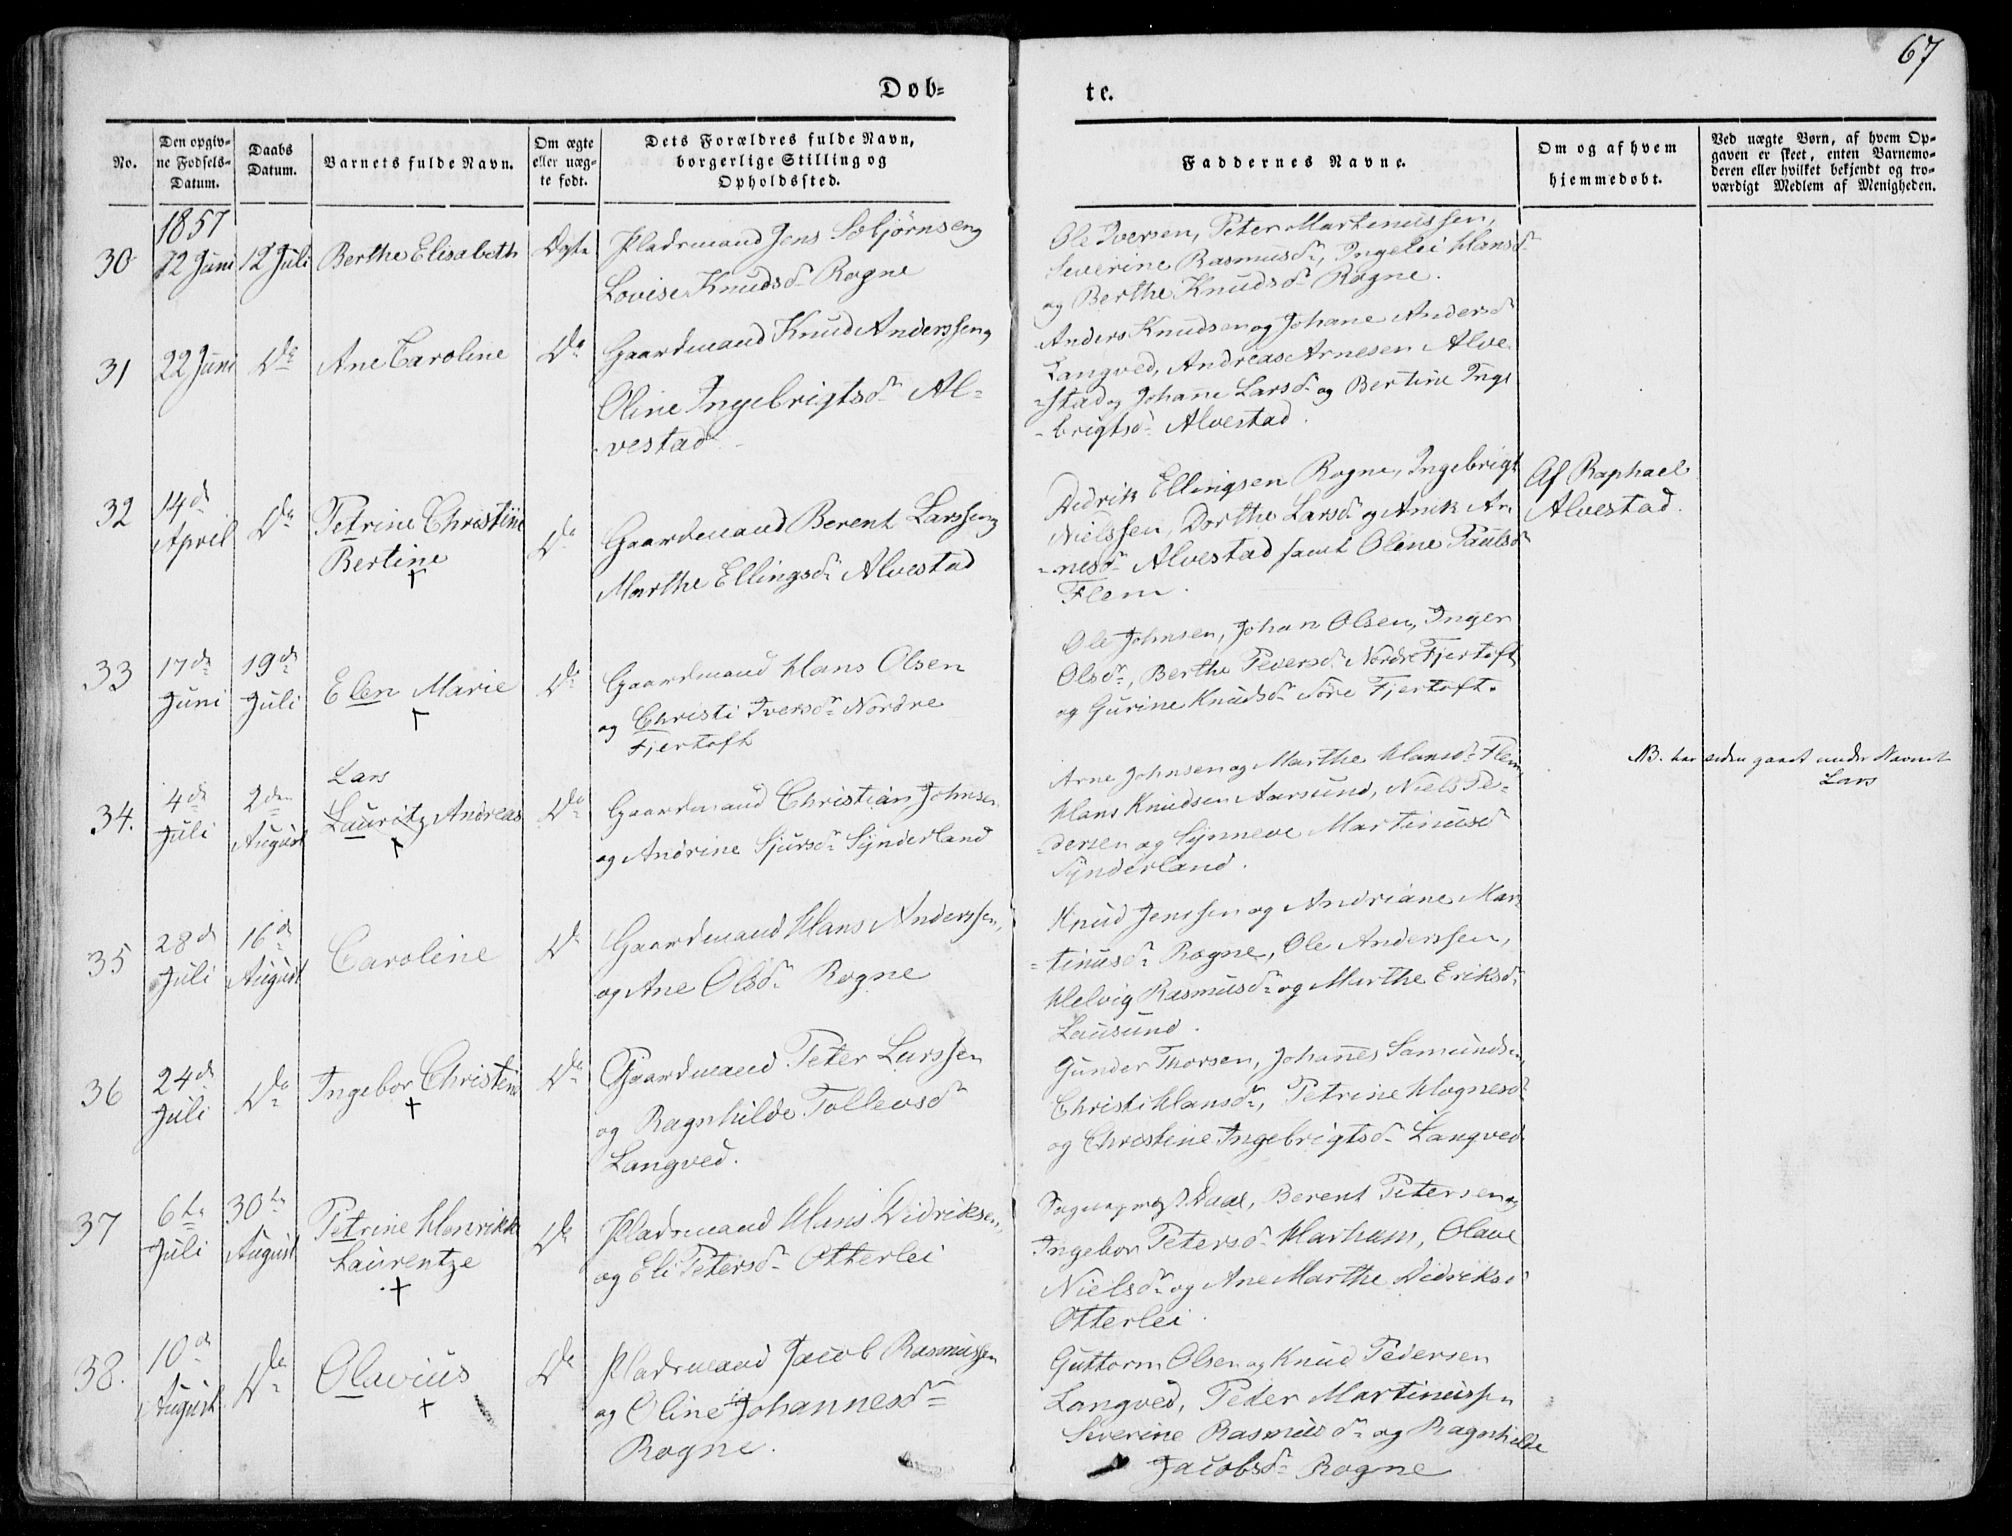 67
Døb=
te.
No.
Den opgiv-
ne Fødsels-
Datum.
Daabs
Datum.
Barnets fulde Navn.
Om ægte
eller uæg-
te født.
Dets Forældres fulde Navn,
borgerlige Stilling og
Opholdssted.
Faddernes Navne.
Om og af hvem
hjemmedøbt.
Ved uægte Børn, af hvem Op-
gaven er skeet, enten Barnemo-
deren eller hvilket bekjendt og tro-
værdigt Medlem af Menigheden.
1857
30
12 Juni
12 Juli
Berthe Elisabeth
Ægte
Pladsmand Jens Sæbjørnsen og
Lovise Knudsdr Rogne
Ole Iversen, Peter Martinussen,
Severine Rasmusdr, Ingelei Hansdr
og Berthe Knudsdr Rogne.
31
22 Juni
Do
Ane Caroline
Do
Gaardmand Knud Anderssen og
Oline Ingebrigtsdr Al-
vestad
Anders Knudsen og Johane Andersdr
Langved, Andreas Arnesen Alve-
-stad og Johane Larsdr og Bertine Inge
-brigtsdr Alvestad.
32
14de
April
Do
Petrine Christine
Bertine
+
Do
Gaardmand Berent Larssen og
Marthe Ellingsdr Alvestad
Didrik Ellingsen Rogne, Ingebrigt
Nielssen, Dorthe Larsdr og Anne Ar-
-nesdr Alvestad samt Oline Paulsdr
Flem.
Af Raphael
Alvestad.
33
17de
Juni
19de
Juli
Elen Marie
+
Do
Gaardmand Hans Olsen
og Christi Iversdr Nordre
Fjertoft
Ole Johnsen, Johan Olsen, Inger
Olsdr, Berthe Pedersdr Nordre Fjertoft
og Gurine Knudsdr Søre Fjertoft.
34.
4de
Juli
2den
August
Lars
Lauritz Andreas
+
Do
Gaardmand Christian Johnsen
og Andrine Sjursdr Synderland
Arne Johnsen og Marthe Hansdr Flem
Hans Knudsen Aarsund, Niels Pe-
-dersen og Synneve Martinusdr
Synderland.
NB. har siden gaaet under Navnet
Lars
35
28de
Juli
16de
August
Caroline
Do
Gaardmand Hans Anderssen,
og Ane Olsdr Rogne
Knud Jenssen og Andriane Mar-
-tinusdr Rogne, Ole Anderssen,
Helvig Rasmusdr og Marthe Eriksdr
Lausund.
36
24de
Juli
Do
Ingebor Christine
+
Do
Gaardmand Peter Larssen
og Ragnhilde Tollevsdr
Langved.
Gunder Thorsen, Johannes Samundsen,
Christi Hansdr, Petrine Hognesdr
og Christine Ingebrigtsdr Langved
37
6te
Juli
30te
August
Petrine Henrikke
Laurentze
+
Do
Pladsmand Hans Didriksen,
og Eli Petersdr Otterlei
Daae, Berent Petersen og
Ingebor Petersdr Harham, Olave
Nielsdr og Ane Marthe Didriksdr
Otterlei.
38.
10de
August
Do
Olavius
+
Do
Pladsmand Jacob Rasmussen
og Oline Johannesdr
Rogne.
Guttorm Olsen og Knud Pedersen
Langved, Peder Martinussen
Severine Rasmusdr og Ragnhilde
Jacobsdr Rogne